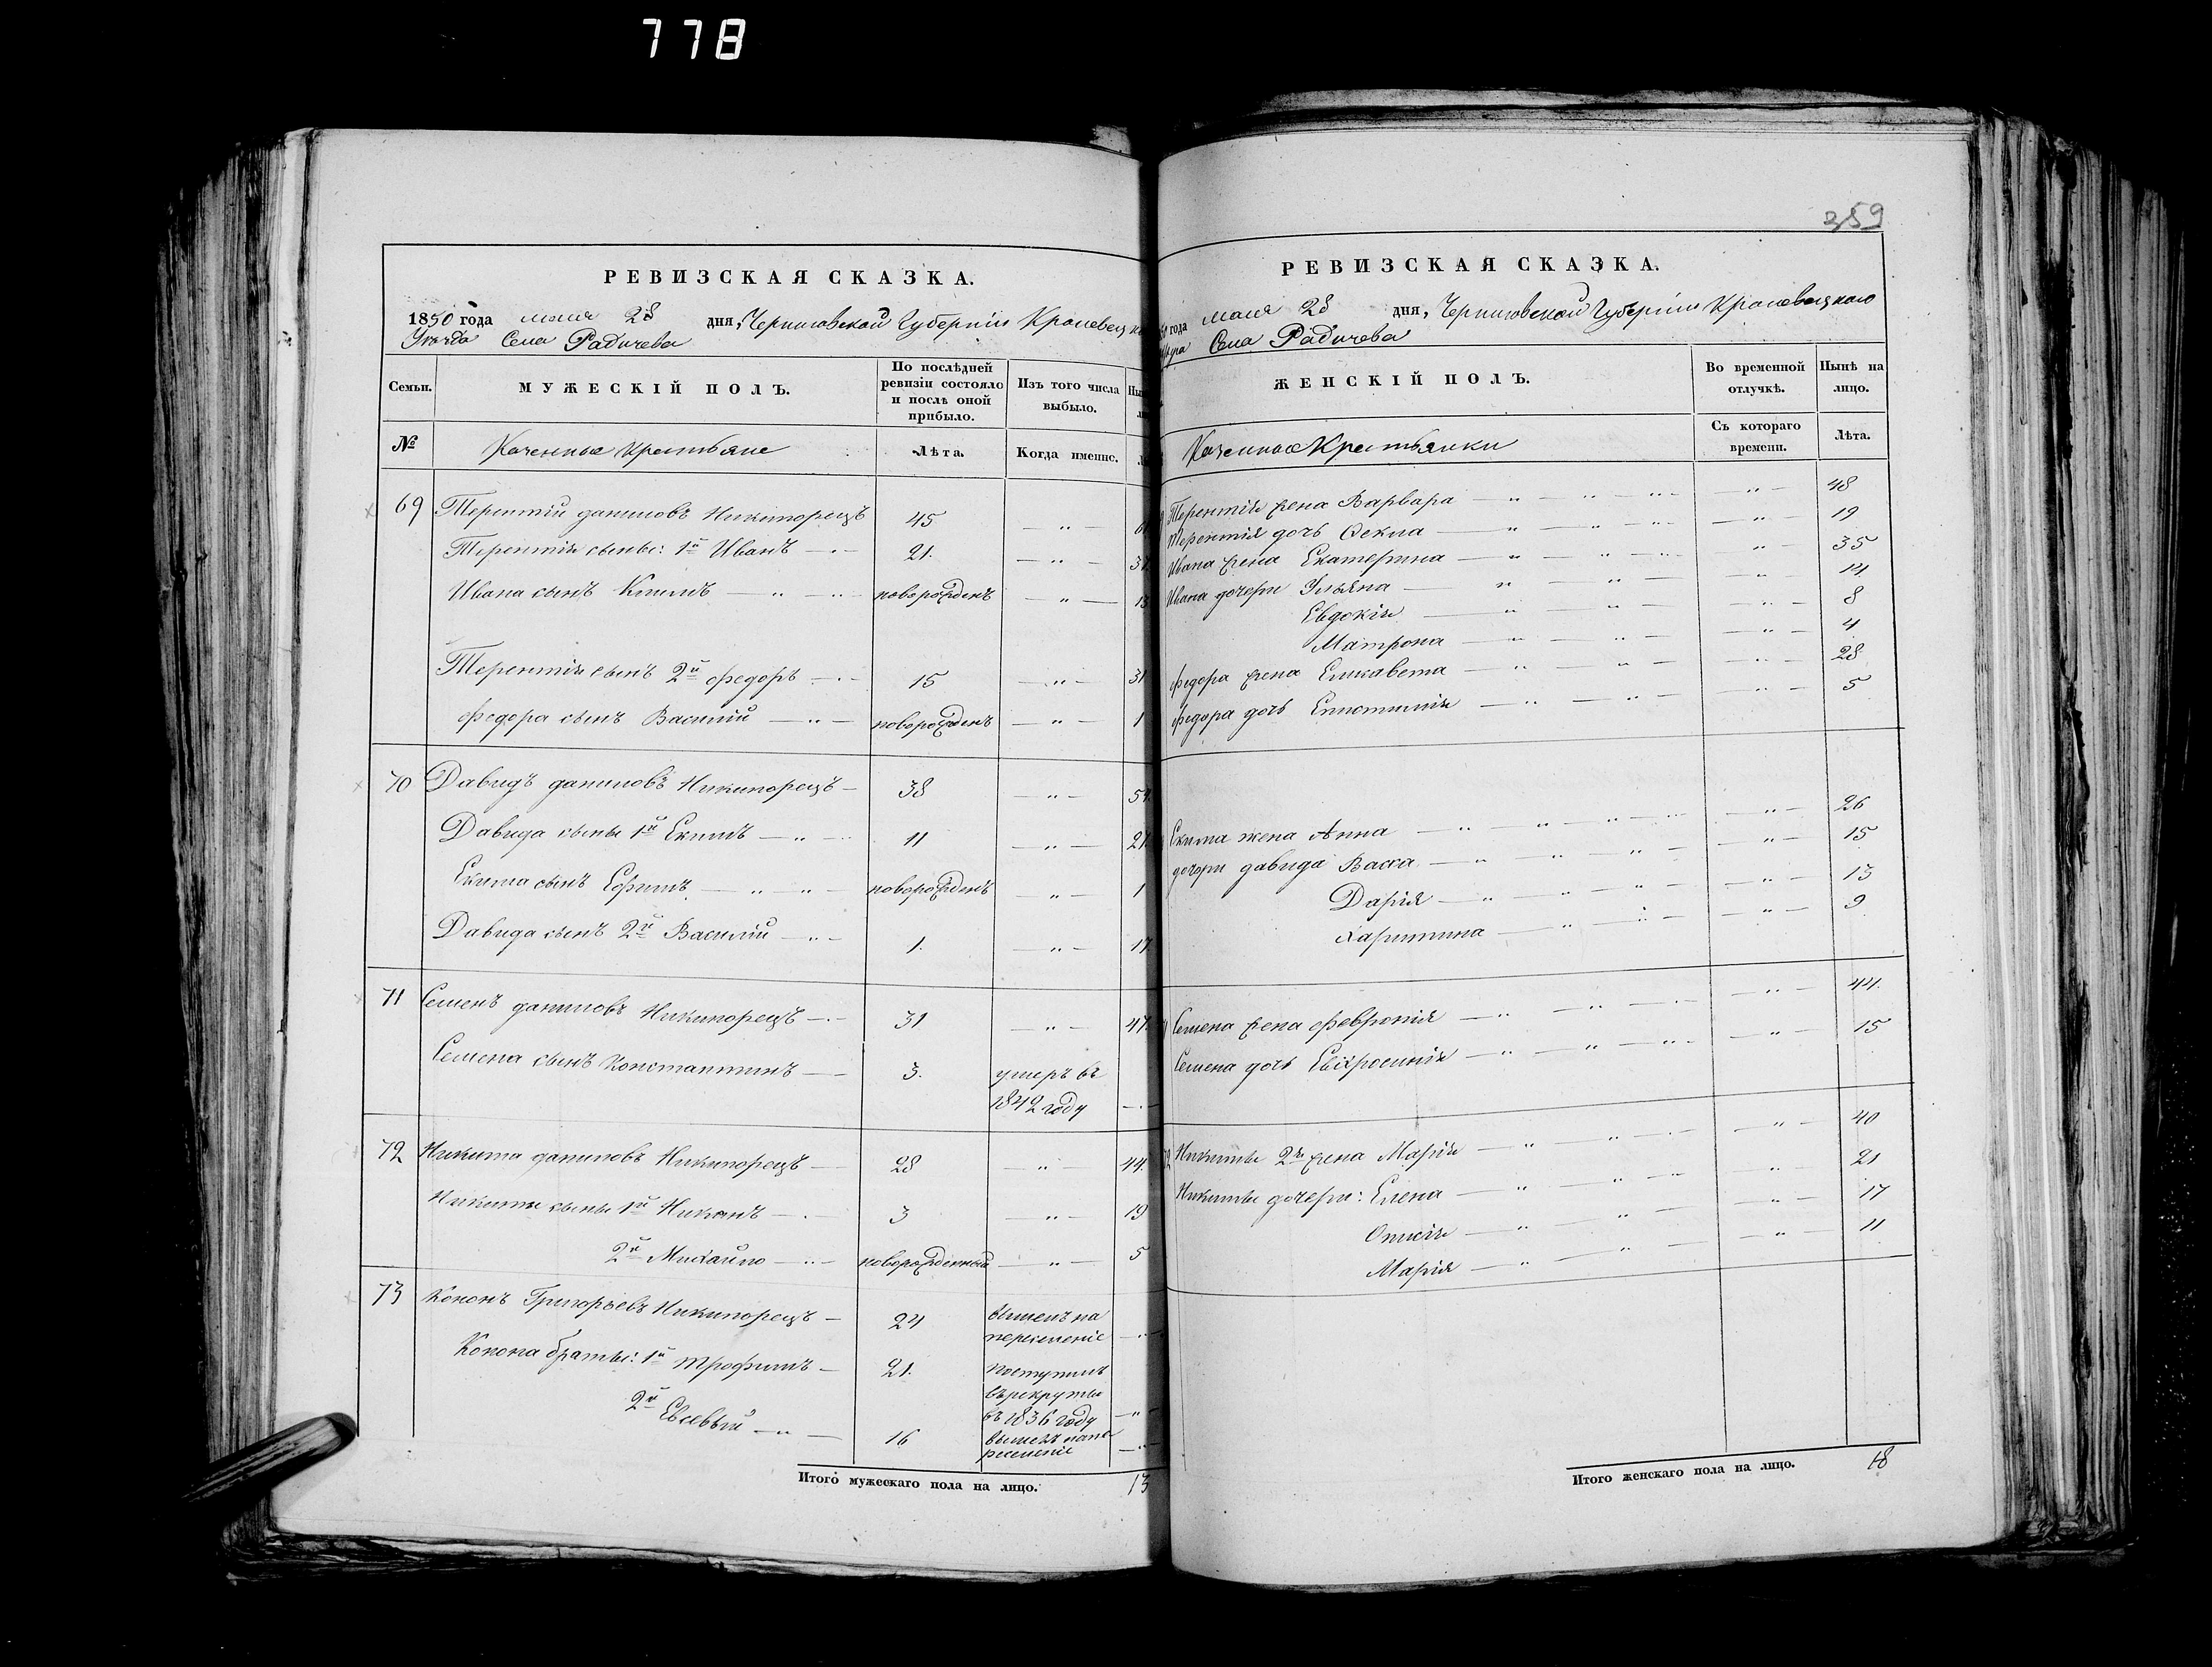 778
РЕВИЗСКАЯ СКАЗКА.
1850 года мая 28 дня, Черниговской Губерніи Кролевецк
Уезда Села Радичева
Семьи.
МУЖЕСКІЙ ПОЛЪ.
По послѣдней
ревизіи состояло
и послѣ оной
прибыло.
Изъ того числа
выбыло.
№
Казенные крестьяне
Лѣта.
Когда именно.
69 Терентій даниловъ Никипорецъ 45 — " —
Терентія сыны: 1й Иванъ — " — 21. — " —
Ивана сынъ Климъ — " — новорожденъ — " — 13
Терентія сынъ 2й федоръ — " — 15 — " — 31
федора сынъ Василій — " — новорожденъ — " — 1
70 Давидъ даниловъ Никипорецъ — 38 — " — 54.
Давида сыны 1й Екимъ — " — 11 — " — 27
Екима сынъ Ефимъ — " — " — новорожденъ — " — 1
Давида сынъ 2й Василій — " — 1. — " — 17.
71 Семенъ даниловъ Никипорецъ — " — 31 — " — 47.
Семена сынъ Константинъ — 3. умеръ въ
1842 году — " —
72 Никита даниловъ Никипорецъ — 28 — " — 44.
Никиты сыны 1й Никонъ — " — 3 — " — 19
2й Михайло — " — новорожденный — " — 5
73 Кононъ Григорьевъ Никипорецъ — 24 вышелъ на
переселеніе — " —
Конона братья: 1й Трофимъ — 21. поступилъ
въ рекруты
въ 1836 году — " —
2й Евсевій — " — 16 вышелъ на пе
реселеніе — " —
Итого мужескаго пола на лицо. 13
359
РЕВИЗСКАЯ СКАЗКА.
года мая 28 дня, Черниговской Губерніи Кролевецкого
Села Радичева
ЖЕНСКІЙ ПОЛЪ.
Во временной
отлучкѣ.
Нынѣ на
лицо.
Казенные Крестьянки
Съ котораго
времени.
Лѣта.
Терентія жена Варвара — " — " — 48
Терентія дочь Фекла — " — " — 19
Ивана жена Екатерина — " — " — 35
Ивана дочери Ульяна — " — " — 14
Евдокія — " — " — 8
Матрона — " — " — 4
федора жена Елисавета — " — " — 28
федора дочь — " — " — 5
Екима жена Анна — " — " — 26
дочери давида Васса — " — " — 15
Дарія — " — " — 13
Харитина — " — " — 9
Семена жена Февронія — " — " — 44.
Семена дочь Евфросинія — " — " — 15
Никиты 2я жена Марія — " — " — 40
Никиты дочери: Елена — " — " — 21
— " — " — 17
Марія — " — " — 11
Итого женскаго пола на лицо. 18